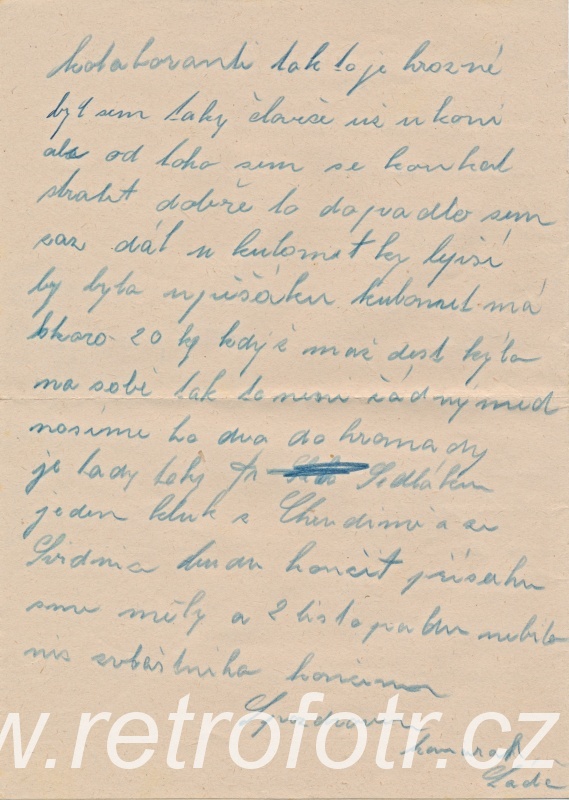 kolaboranti tak to je hrozné
byl sem taky člověče už u koní
ale od toho sem se koukal
stratit dobře to dopadlo sem
zaz dál u kulometky lepší
by byla u pěšáku kulomet má
skoro 20 kg když máš dest kýla
na sobě tak to není žádný med
nosíme to dva do hromady
je tady taky Fr Sedláku
jeden kluk z Chrudimi a ze
budu končit přísahu
sme měly a 2 listopadu nebilo
nic zvláštního končim
Spozdravem
kamarad
Lada
www.retrofotr.cz